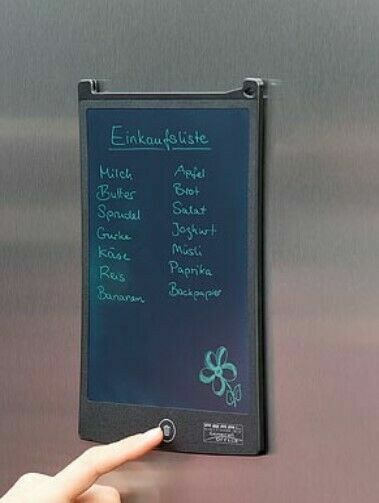 Einkaufsliste
Milch
Butter
Sprudel
Gurke
Käse
Reis
Bananen
Apfel
Brot
Salat
Joghurt
Müsli
Paprika
Backpapier